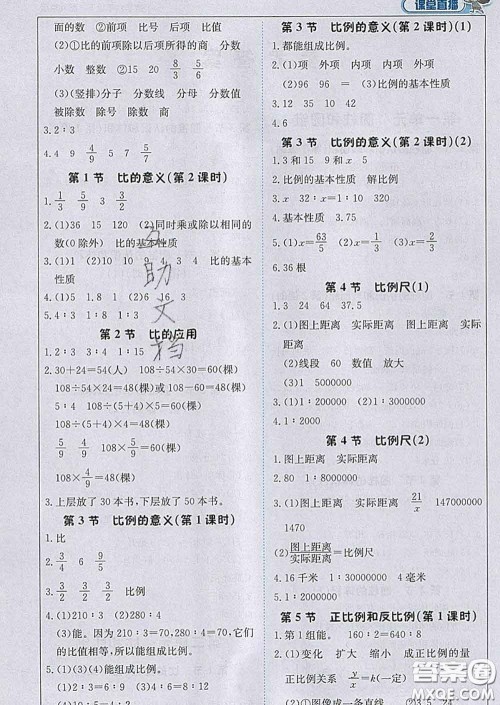 面的数　②前项　比号　后项　前项
(2)①比的前项除以后项所得的商　分数
小数　整数　②15　20　8
(3)(竖排)分子　分数线　分母　分数值
被除数　除号　除数　商
3.2∶3
4.4　4/9　5　7　5/7
第1节　比的意义(第2课时)
1.1/3　5/9　3/2　3
2.(1)36　15　120　(2)同时乘或除以相同的
数(0除外)　比的基本性质
3.(1)1　(2)10　9　4　3　4　比的基本
性质
4.(1)5　1.8　1　(2)6　16　3
5.4∶3　1∶8
第2节　比的应用
1.2∶3　3∶4　1∶15
2.30+24=54(人)　108÷54×30=60(棵)
108÷54×24=48(棵)或108-60=48(棵)
5∶4　108÷(5+4)×5=60(棵)
108÷(5+4)×4=48(棵)
5/9　4/9　108×5/9=60(棵)
108×4/9=48(棵)
3.上层放了30本书,下层放了50本书。
第3节　比例的意义(第1课时)
1.比
2.3/4　6　9
3.2/3　2/3　比例
4.(1)210∶3　(2)280∶4
(3)能。因为,210∶3=280∶4,它们
的比值相等,所以,它们能组成比例。
5.(1)(3)(4)能组成比例。
课堂直播
第3节　比例的意义(第2课时)(1)
1.都能组成比例。
2.(1)项　外项　内项　内项　外项
(2)96　96　=　(3)比例的基本性质
3.12　35　10　42
4.6
第3节　比例的意义(第2课时)(2)
1.3和15　9和x　5
2.比例的基本性质　解比例
3.x　32∶x=1∶10　320
4.基本性质　3.75
5.(1)x=63/5　(2)x=1/3　(3)x=6
6.36根
第4节　比例尺(1)
1.3　24　64　37.5
2.(1)图上距离　实际距离　图上距离　实际
距离
(2)线段　60　数值　放大
3.(1)1∶2000000　(2)1∶8000000
4.1∶2000
第4节　比例尺(2)
1.图上距离　实际距离
2.80　1∶8000000
3.(1)图上距离　实际距离　21/x　147000000
1470
(2)图上距离/实际距离=比例尺
4.16千米　1∶3000000
5.1∶20000000
第5节　正比例和反比例(第1课时)
1.第1组能。　160∶2=640∶8
2.(1)变化　扩大　缩小　成正比例的量
正比例关系　y/x=k(一定)
(2)①图像成一条直线
助
文
档
答案圈
MXQE.COM